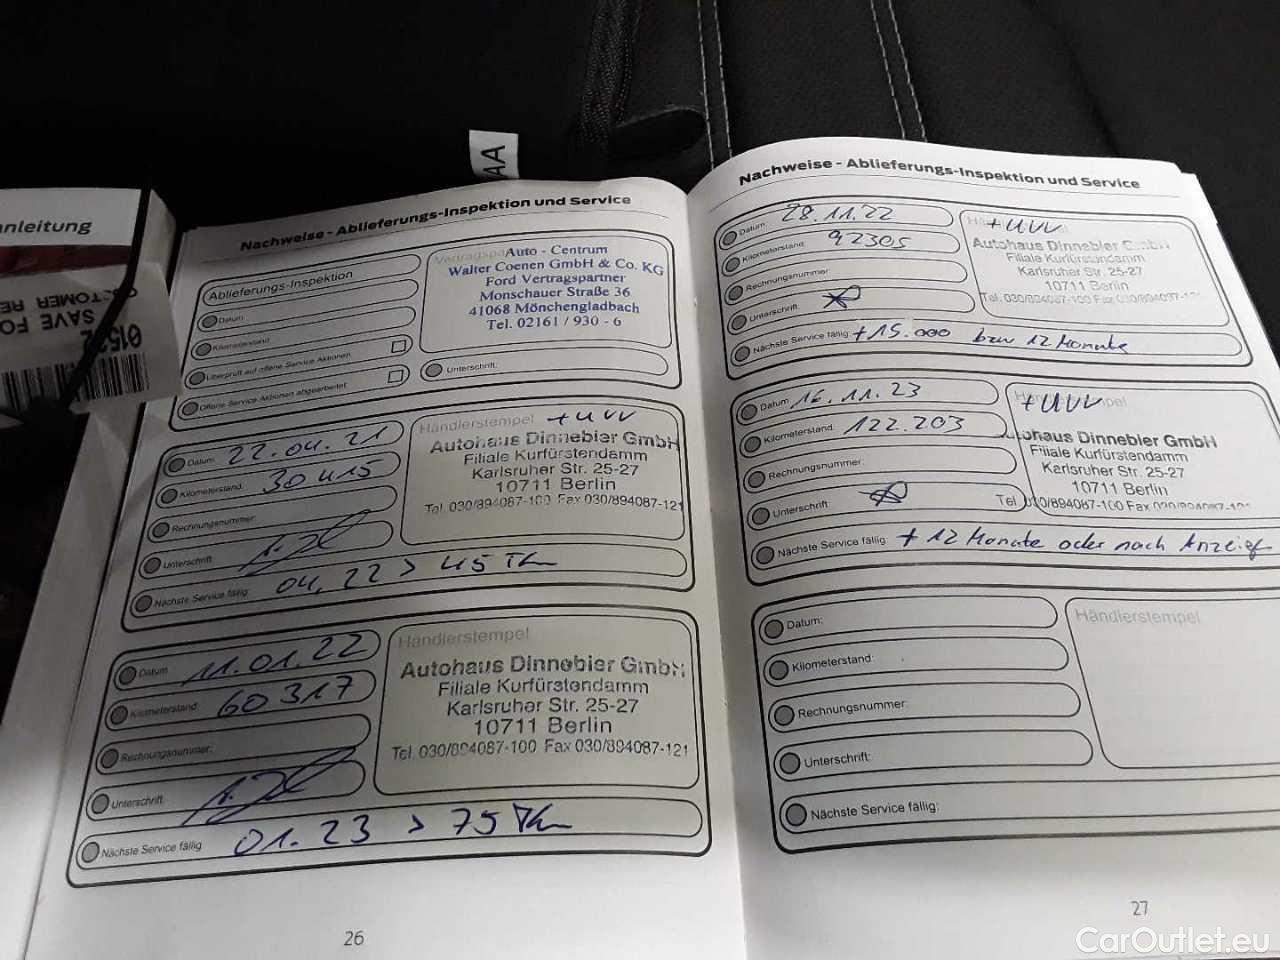 anleitung
CUSTOMER RE
SAVE FO
AA
Nachweise - Ablieferungs-Inspektion und Service
Ablieferungs-Inspektion
Datum
Kilometerstand
Überprüft auf offene Service Aktionen
Offene Service Aktionen abgearbeitet
Auto - Centrum
Walter Coenen GmbH & Co. KG
Ford Vertragspartner
Monschauer Straße 36
41068 Mönchengladbach
Tel. 02161 / 930 - 6
Unterschrift:
Datum: 22.04.21
Kilometerstand: 30415
Rechnungsnummer:
Unterschrift:
Nächste Service fällig: 04.22 > 45 TKm
Händlerstempel + UVV
Autohaus Dinnebier GmbH
Filiale Kurfürstendamm
Karlsruher Str. 25-27
10711 Berlin
Tel. 030/894087-100 Fax 030/894087-121
Datum 11.01.22
Kilometerstand: 60317
Rechnungsnummer:
Unterschrift:
Nächste Service fällig 01.23 > 75 TKm
Händlerstempel
Autohaus Dinnebier GmbH
Filiale Kurfürstendamm
Karlsruher Str. 25-27
10711 Berlin
Tel. 030/894087-100 Fax 030/894087-121
26
Nachweise - Ablieferungs-Inspektion und Service
Datum: 28.11.22
Kilometerstand: 92305
Rechnungsnummer
Unterschrift:
Nächste Service fällig: +15.000 bzw 12 Monate
+ UVV
Autohaus Dinnebier GmbH
Filiale Kurfürstendamm
Karlsruher Str. 25-27
10711 Berlin
Tel. 030/894087-100 Fax 030/894087-121
Datum 16.11.23
Kilometerstand: 122.203
Rechnungsnummer:
Unterschrift:
Nächste Service fällig + 12 Monate oder nach Anzeige
+ UVV
Autohaus Dinnebier GmbH
Filiale Kurfürstendamm
Karlsruher Str. 25-27
10711 Berlin
Tel. 030/894087-100 Fax 030/894087-121
Datum:
Kilometerstand:
Rechnungsnummer:
Unterschrift:
Nächste Service fällig:
Händlerstempel
27
CarOutlet.eu